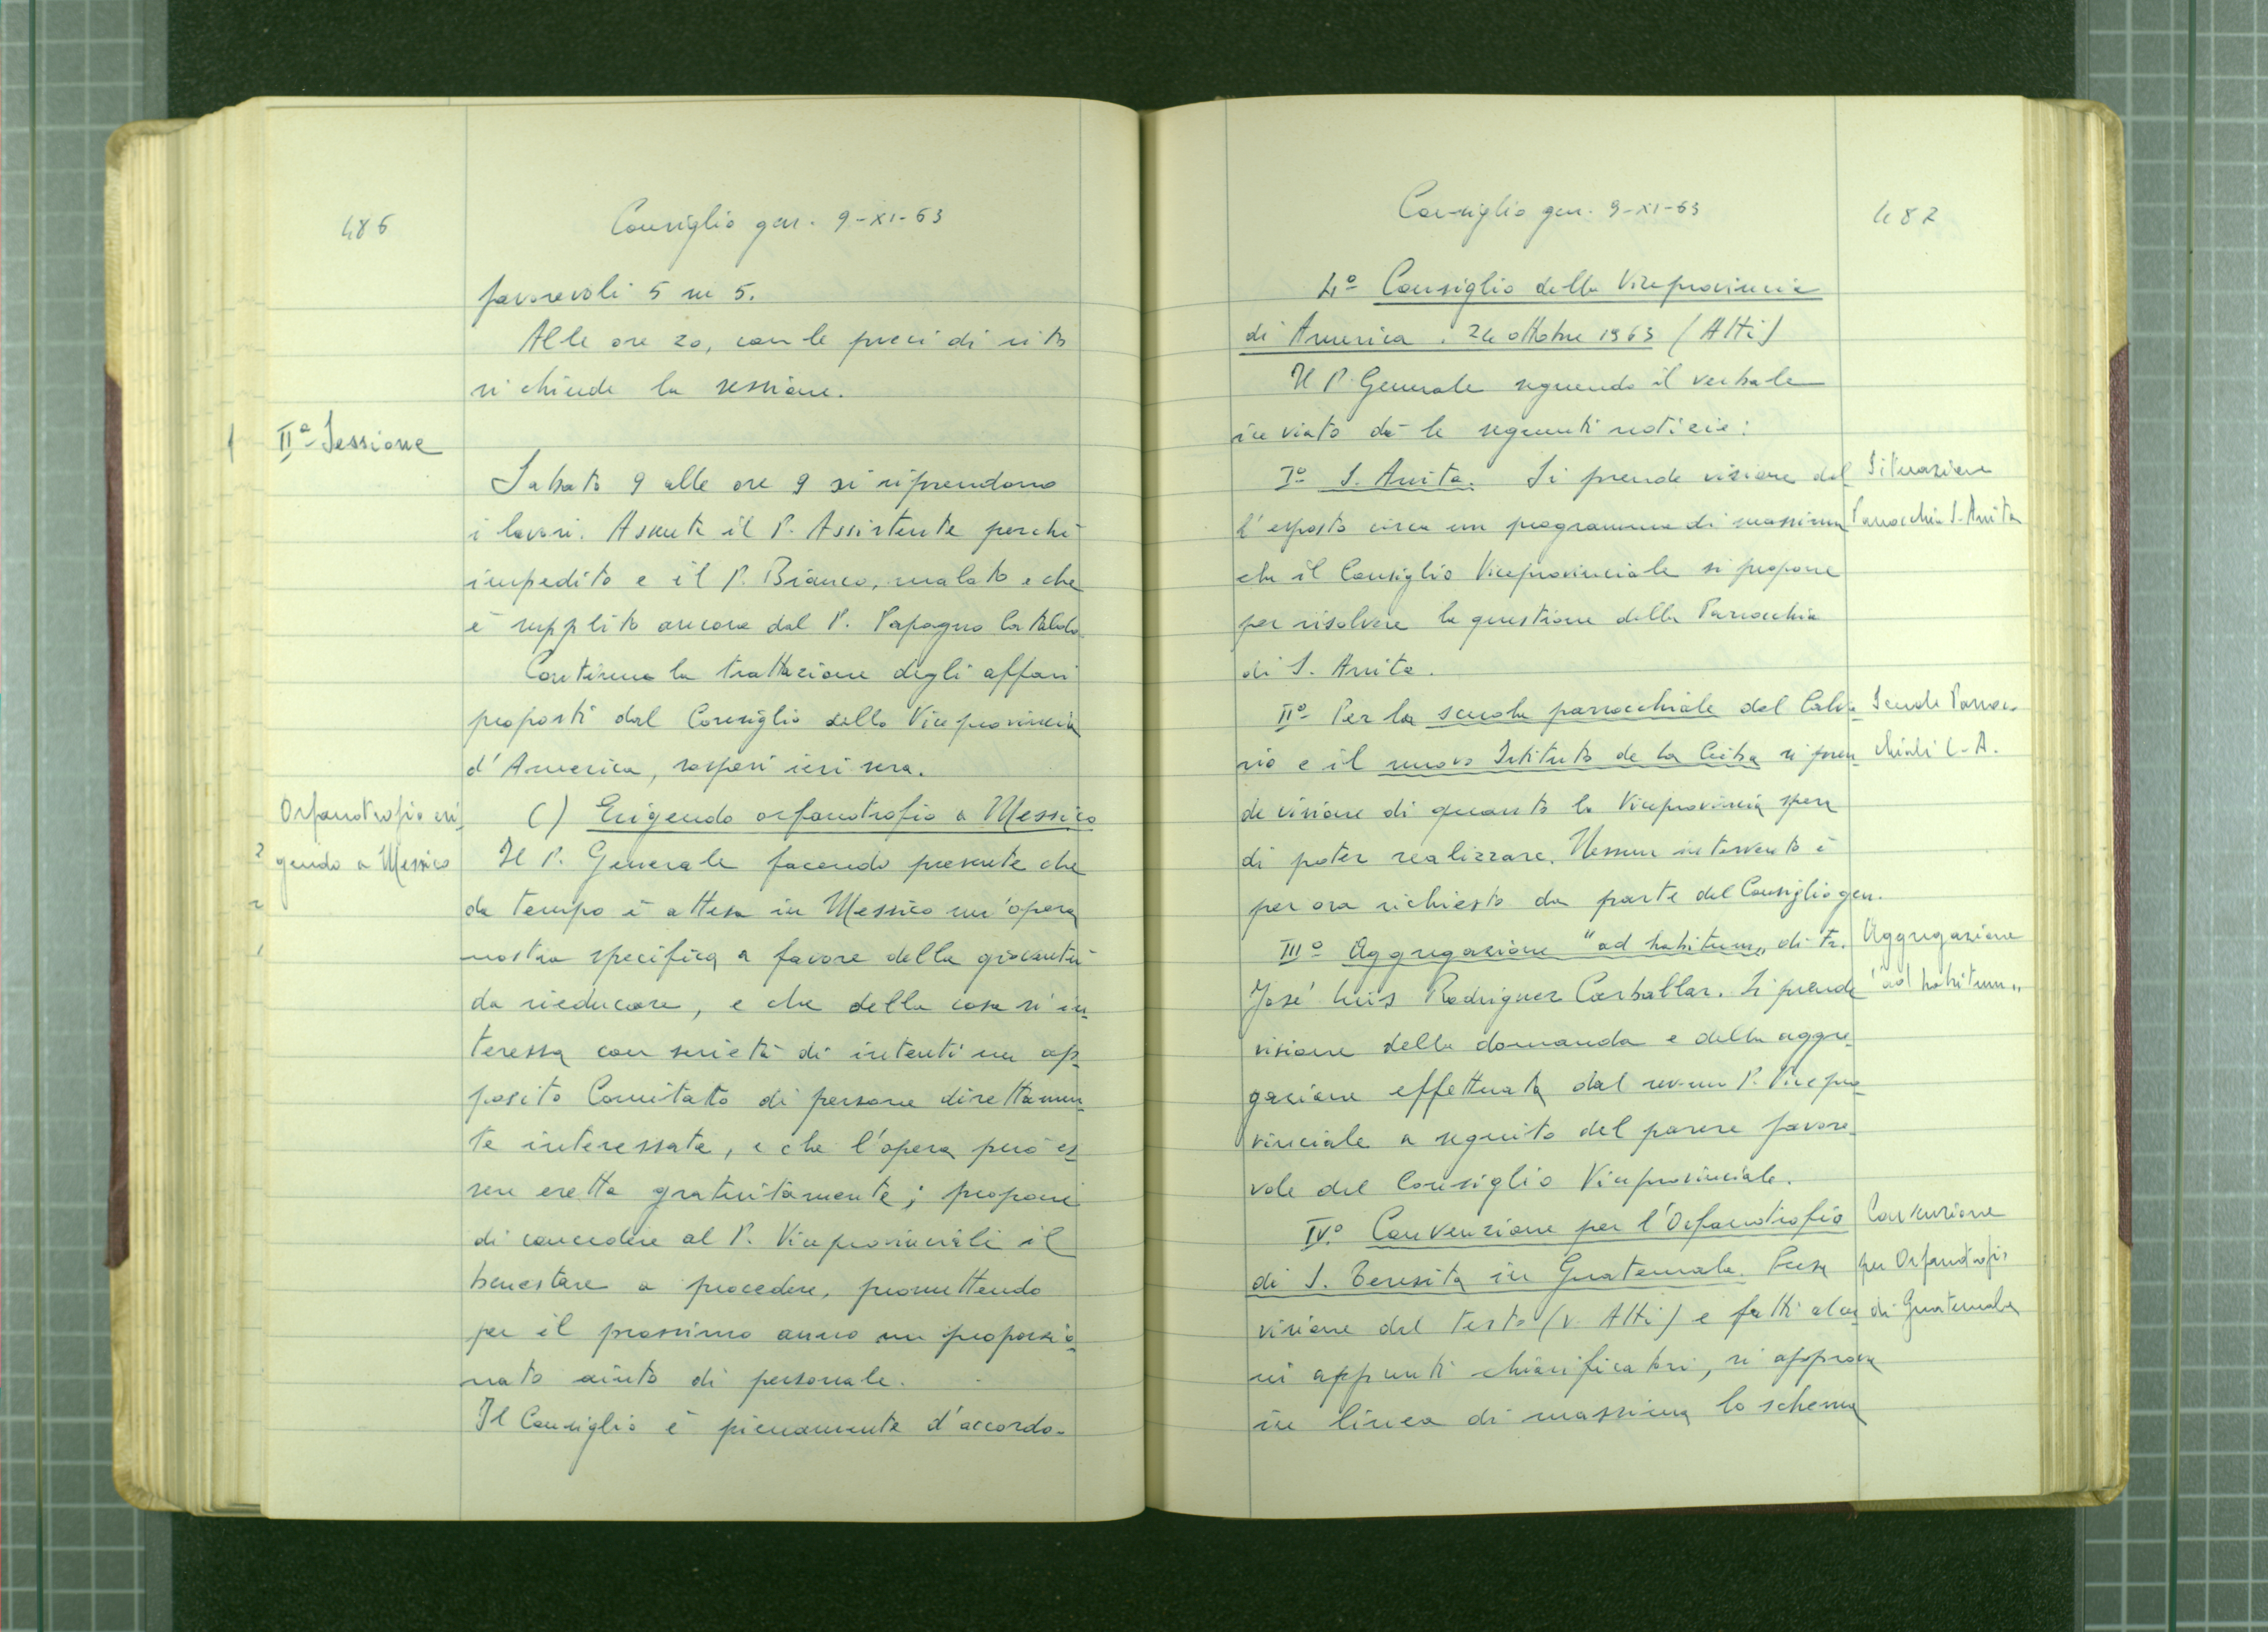 486
Consiglio gen. 9-XI-63
favorevoli 5 su 5.
Alle ore 20, con le preci di rito
si chiude la sessione.
IIª Sessione
Sabato 9 alle ore 9 si riprendono
i lavori. Assente il P. Assistente perché
impedito e il P. Bianco, malato e che
è supplito ancora dal P. Papagno Cataldo
Continua la trattazione degli affari
proposti dal Consiglio della Viceprovincia
d'America, sospesi ieri sera.
Orfanotrofio eri-
gendo a Messico
C) Erigendo orfanotrofio a Messico
Il P. Generale facendo presente che
da tempo è attesa in Messico un'opera
nostra specifica a favore della gioventù
da rieducare, e che della cosa si in-
teressa con serietà di intenti un ap-
posito Comitato di persone direttamen-
te interessate, e che l'opera può es-
sere eretta gratuitamente; propone
di concedere al P. Viceprovinciale il
benestare a procedere, promettendo
per il prossimo anno un proporzio-
nato aiuto di personale.
Il Consiglio è pienamente d'accordo.
Consiglio gen. 9-XI-63
487
4º Consiglio della Viceprovincia
di America. 24 ottobre 1963 (Atti)
Il P. Generale seguendo il verbale
inviato dà le seguenti notizie:
Iº S. Anita. Si prende visione del
l'esposto circa un programma di massima
che il Consiglio Viceprovinciale si propone
per risolvere la questione della Parrocchia
di S. Anita.
Situazione
Parrocchia S. Anita
IIº Per la scuola parrocchiale del Calva-
rio e il nuovo Istituto de La Ceiba si pren-
de visione di quanto la Viceprovincia spera
di poter realizzare. Nessun intervento è
per ora richiesto da parte del Consiglio gen.
Scuole Parroc-
chiali C.A.
IIIº Aggregazione "ad habitum" di Fr.
José Luis Rodriguez Carballar. Si prende
visione della domanda e della aggre-
gazione effettuata dal rev.mo P. Vicepro-
vinciale a seguito del parere favore-
vole del Consiglio Viceprovinciale.
Aggregazione
"ad habitum"
IVº Convenzione per l'Orfanotrofio
di S. Teresita in Guatemala. Presa
visione del testo (v. Atti) e fatti alcu-
ni appunti chiarificatori, si approva
in linea di massima lo schema
Convenzione
per Orfanotrofio
di Guatemala